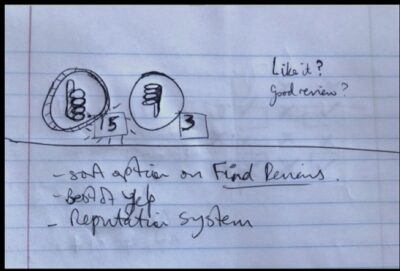 Like it?
Good review?
5
3
- sort option on Find Reviews.
- Best of Yelp
- Reputation system